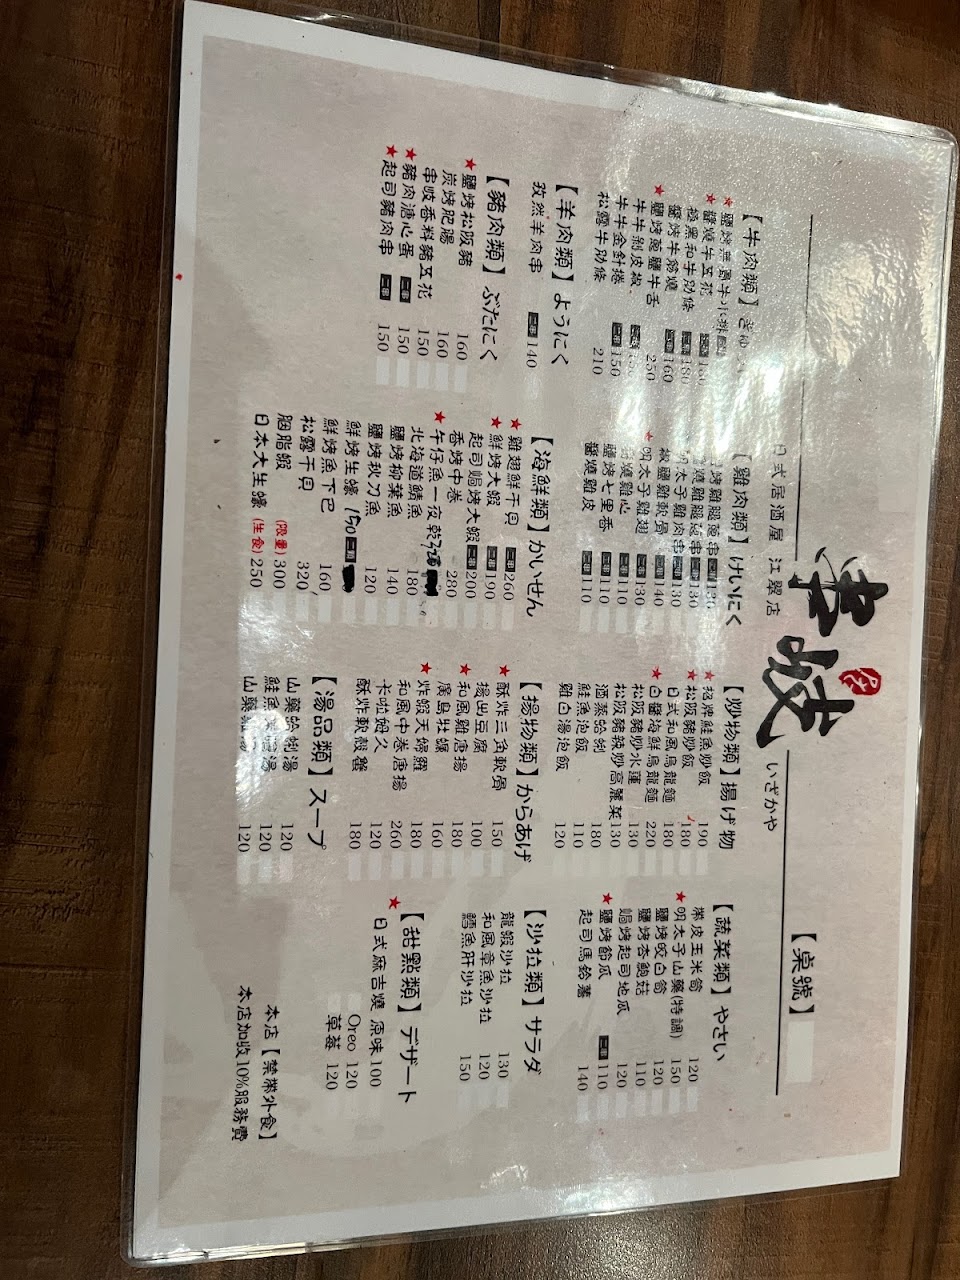 串岐
日式居酒屋 江翠店
いざかや
【桌號】
【牛肉類】
★鹽烤無骨牛小排
★醬燒牛五花
極黑和牛肋條 二串 180
醬烤牛筋燒 二串 160
★鹽烤蔥鹽牛舌 250
牛牛剝皮椒 二串
牛牛金針捲 二串 150
松露牛肋條 210
【羊肉類】ようにく
孜然羊肉串 二串 140
【豬肉類】ぶたにく
★鹽烤松阪豬 160
炭烤肥腸 160
串岐香料豬五花 150
★豬肉溏心蛋 二串 150
★起司豬肉串 二串 150
【雞肉類】けいにく
鹽烤雞腿蔥串 二串 130
醬燒雞腿蔥串 二串 130
明太子雞肉串 二串 130
椒鹽雞軟骨 二串 140
★明太子雞翅 二串 130
醬燒雞心 二串 110
鹽烤七里香 二串 110
醬燒雞皮 二串 110
【海鮮類】かいせん
★雞翅鮮干貝 二串 260
★鮮烤大蝦 二串 190
起司焗烤大蝦 二串 200
香烤中卷 280
★午仔魚一夜乾
北海道鯖魚 180
鹽烤柳葉魚 140
鹽烤秋刀魚 120
鮮烤生蠔 190 二顆
鮮烤魚下巴 160
松露干貝 320
胭脂蝦 (限量) 300
日本大生蠔 (生食) 250
【炒物類】揚げ物
★招牌鮭魚炒飯 190
★松阪豬炒飯 180
日式和風烏龍麵 180
★白醬海鮮烏龍麵 220
松阪豬炒水蓮 130
松阪豬辣炒高麗菜 130
酒蒸蛤蜊 180
鮭魚泡飯 110
雞白湯泡飯 120
【揚物類】からあげ
★酥炸三角軟骨 150
揚出豆腐 100
★和風雞唐揚 180
廣島牡蠣 160
★炸蝦天婦羅 180
和風中卷唐揚 260
卡啦姆久 120
酥炸軟殼蟹 180
【湯品類】スープ
山藥蛤蜊湯 120
鮭魚味噌湯 120
山藥雞湯 120
【蔬菜類】やさい
帶皮玉米筍 120
★明太子山藥(特調) 150
鹽烤皎白筍 120
鹽烤杏鮑菇 110
焗烤起司地瓜 120
★鹽烤節瓜 二串 110
起司馬鈴薯 140
【沙拉類】サラダ
龍蝦沙拉 130
和風章魚沙拉 120
鱈魚肝沙拉 150
【甜點類】デザート
★日式麻吉燒 原味 100
Oreo 120
草莓 120
本店【禁帶外食】
本店加收10%服務費